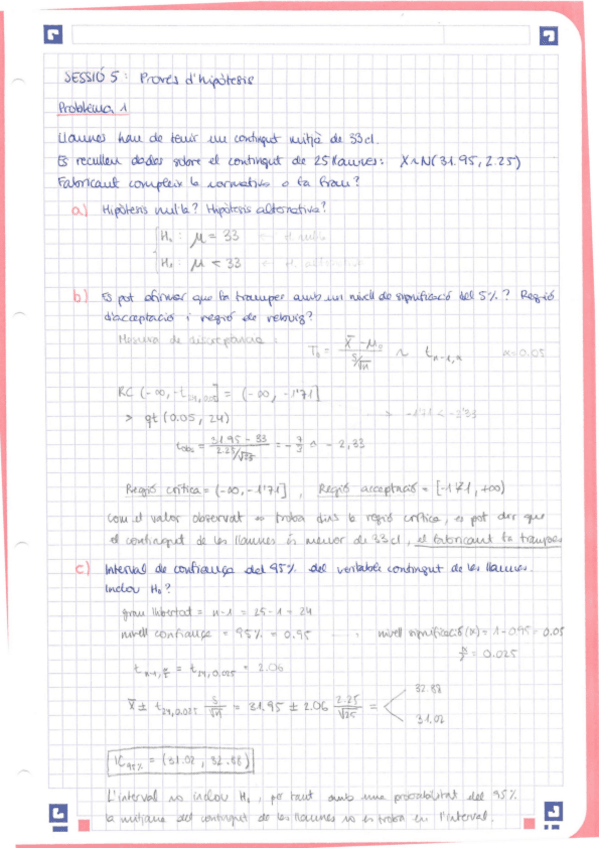 SESSIÓ 5: Proves d'hipòtesis
Problema 1
Llaunes han de tenir un contingut mitjà de 33cl.
Es recullen dades sobre el contingut de 25 llaunes: X~N(31.95, 2.25)
Fabricant compleix la normativa o fa frau?
a) Hipòtesis nul·la? Hipòtesis alternativa?
H₀: μ = 33 ← H nul·la
H₁: μ < 33 ← H. alternativa
b) Es pot afirmar que fa trampes amb un nivell de significació del 5%? Regió
d'acceptació i regió de rebuig?
Mesura de discrepància: T₀ = (X̄ - μ₀)/(S/√n) ~ tₙ₋₁,α α=0.05
RC (-∞, -t₂₄,₀.₀₅] = (-∞, -1'71]
> qt (0.05, 24) > -1'71 < -2'33
t_obs = (31.95 - 33)/(2.25/√25) = -7/3 ≈ -2,33
Regió crítica = (-∞, -1'71], Regió acceptació = [-1'71, +∞)
Com el valor observat es troba dins la regió crítica, es pot dir que
el contingut de les llaunes és menor de 33cl, el fabricant fa trampes
c) Interval de confiança del 95% del veritable contingut de les llaunes.
Inclou H₀?
grau llibertat = n-1 = 25-1 = 24
nivell confiança = 95% = 0.95 nivell significació(α) = 1-0.95 = 0.05
α/2 = 0.025
tₙ₋₁,α/2 = t₂₄,₀.₀₂₅ = 2.06
X̄ ± t₂₄,₀.₀₂₅ S/√n = 31.95 ± 2.06 2.25/√25 = 32.88
31.02
IC₉₅% = (31.02, 32.88)
L'interval no inclou H₀, per tant amb una probabilitat del 95%
la mitjana del contingut de les llaunes no es troba en l'interval.